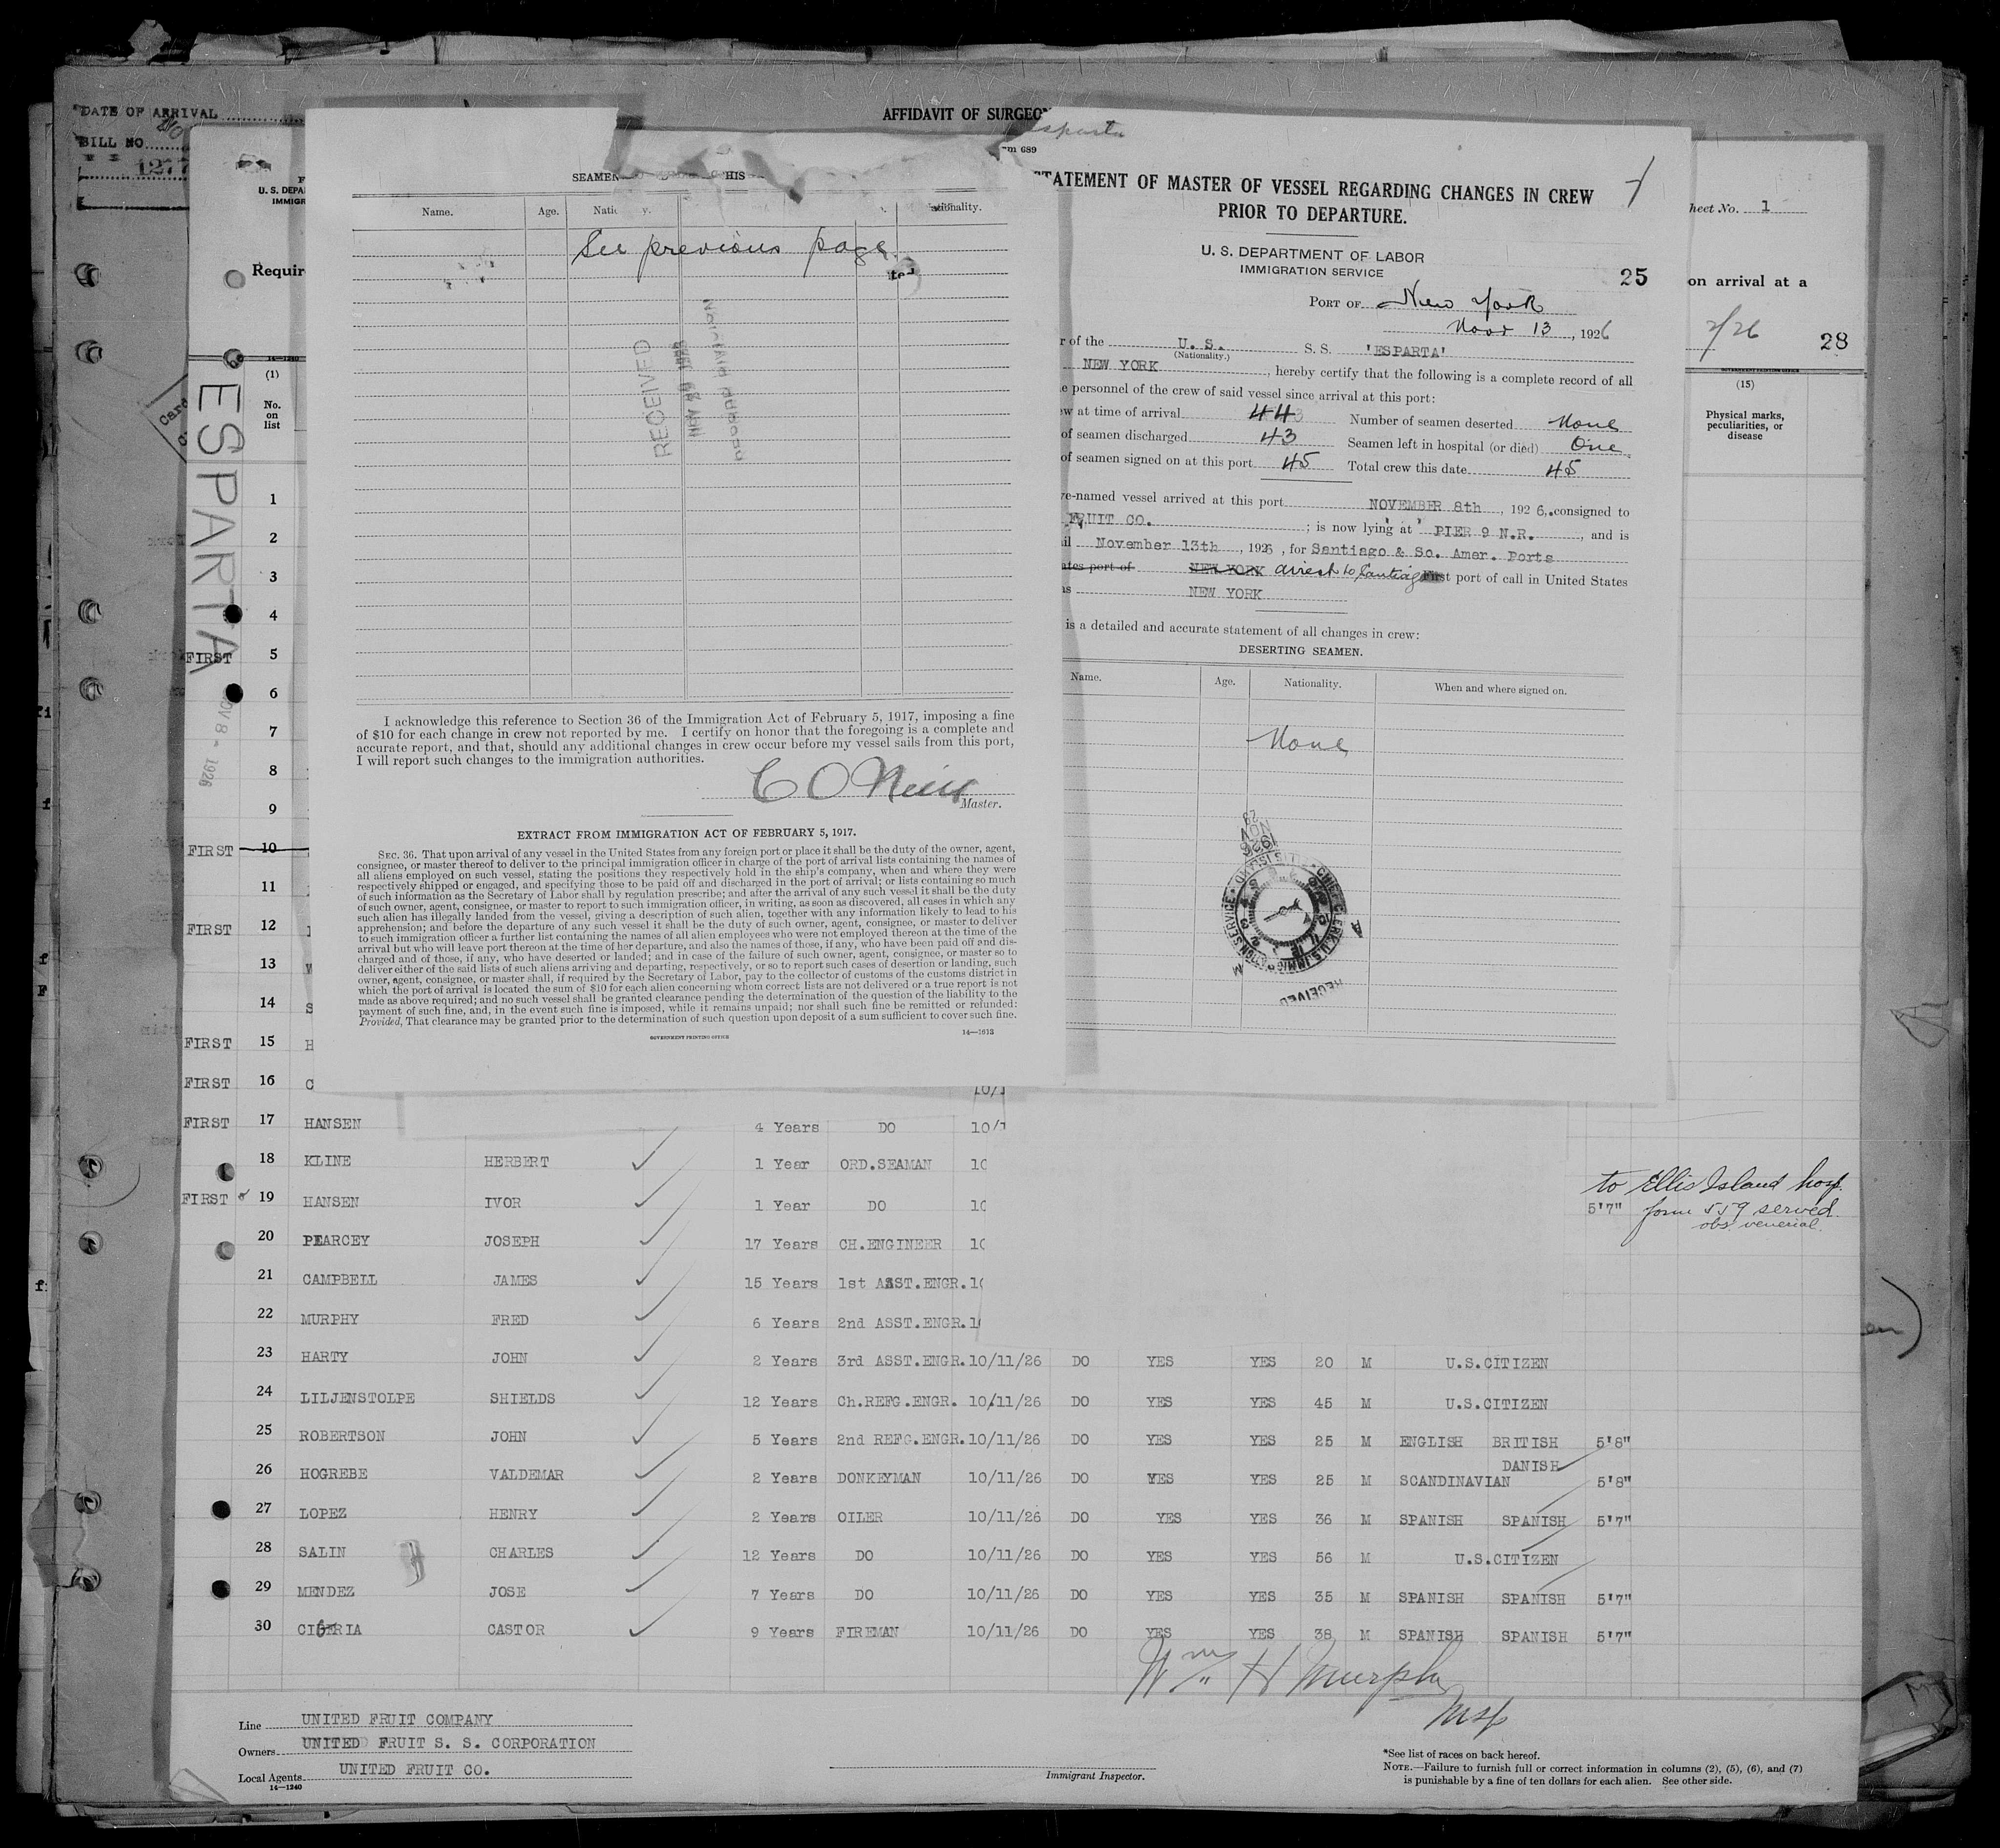 DATE OF ARRIVAL
BILL NO
1277
AFFIDAVIT OF SURGEON
U. S. DEPA
IMMIGR
Requir
14—1240
(1)
No.
on
list
ESPARTA
NOV 8 - 1926
SEAMEN THIS
Name. Age. Nati y. ationality.
See previous page
ted
RECEIVED
I acknowledge this reference to Section 36 of the Immigration Act of February 5, 1917, imposing a fine
of $10 for each change in crew not reported by me. I certify on honor that the foregoing is a complete and
accurate report, and that, should any additional changes in crew occur before my vessel sails from this port,
I will report such changes to the immigration authorities.
C O Neill
Master.
EXTRACT FROM IMMIGRATION ACT OF FEBRUARY 5, 1917.
SEC. 36. That upon arrival of any vessel in the United States from any foreign port or place it shall be the duty of the owner, agent,
consignee, or master thereof to deliver to the principal immigration officer in charge of the port of arrival lists containing the names of
all aliens employed on such vessel, stating the positions they respectively hold in the ship's company, when and where they were
respectively shipped or engaged, and specifying those to be paid off and discharged in the port of arrival; or lists containing so much
of such information as the Secretary of Labor shall by regulation prescribe; and after the arrival of any such vessel it shall be the duty
of such owner, agent, consignee, or master to report to such immigration officer, in writing, as soon as discovered, all cases in which any
such alien has illegally landed from the vessel, giving a description of such alien, together with any information likely to lead to his
apprehension; and before the departure of any such vessel it shall be the duty of such owner, agent, consignee, or master to deliver
to such immigration officer a further list containing the names of all alien employees who were not employed thereon at the time of the
arrival but who will leave port thereon at the time of her departure, and also the names of those, if any, who have been paid off and dis-
charged and of those, if any, who have deserted or landed; and in case of the failure of such owner, agent, consignee, or master so to
deliver either of the said lists of such aliens arriving and departing, respectively, or so to report such cases of desertion or landing, such
owner, agent, consignee, or master shall, if required by the Secretary of Labor, pay to the collector of customs of the customs district in
which the port of arrival is located the sum of $10 for each alien concerning whom correct lists are not delivered or a true report is not
made as above required; and no such vessel shall be granted clearance pending the determination of the question of the liability to the
payment of such fine, and, in the event such fine is imposed, while it remains unpaid; nor shall such fine be remitted or refunded:
Provided, That clearance may be granted prior to the determination of such question upon deposit of a sum sufficient to cover such fine.
GOVERNMENT PRINTING OFFICE
14—1613
Esparta
m 689
STATEMENT OF MASTER OF VESSEL REGARDING CHANGES IN CREW
PRIOR TO DEPARTURE.
U. S. DEPARTMENT OF LABOR
IMMIGRATION SERVICE
25
PORT OF New York
Novr 13, 1926
r of the U. S. S. S. 'ESPARTA'
(Nationality.)
NEW YORK, hereby certify that the following is a complete record of all
e personnel of the crew of said vessel since arrival at this port:
ew at time of arrival 443 Number of seamen deserted None
of seamen discharged 43 Seamen left in hospital (or died) One
of seamen signed on at this port 45 Total crew this date 45
e-named vessel arrived at this port NOVEMBER 8th, 1926, consigned to
FRUIT CO. ; is now lying at PIER 9 N.R., and is
il November 13th, 1926, for Santiago & So. Amer. Ports
ates port of NEW YORK direct to Santiago First port of call in United States
as NEW YORK
is a detailed and accurate statement of all changes in crew:
DESERTING SEAMEN.
Name. Age. Nationality. When and where signed on.
None
NOV
1926
CHIEF CLERK, U.S. IMMIGRATION SERVICE
RECEIVED
heet No. 1
on arrival at a
28
GOVERNMENT PRINTING OFFICE
(15)
Physical marks,
peculiarities, or
disease
1
2
3
4
FIRST 5
6
7
8
9
FIRST 10
11
FIRST 12
13 W
14 S
FIRST 15 H
FIRST 16 C 10/1
FIRST 17 HANSEN 4 Years DO 10/1
18 KLINE HERBERT 1 Year ORD.SEAMAN 10
FIRST 19 HANSEN IVOR 1 Year DO 10 5'7"
to Ellis Island hosp.
form 559 served
obs. venerial
20 PEARCEY JOSEPH 17 Years CH.ENGINEER 10
21 CAMPBELL JAMES 15 Years 1st ASST.ENGR. 10
22 MURPHY FRED 6 Years 2nd ASST.ENGR. 10
23 HARTY JOHN 2 Years 3rd ASST.ENGR. 10/11/26 DO YES YES 20 M U.S.CITIZEN
24 LILJENSTOLPE SHIELDS 12 Years Ch.REFG.ENGR. 10/11/26 DO YES YES 45 M U.S.CITIZEN
25 ROBERTSON JOHN 5 Years 2nd REFG.ENGR. 10/11/26 DO YES YES 25 M ENGLISH BRITISH 5'8"
26 HOGREBE VALDEMAR 2 Years DONKEYMAN 10/11/26 DO YES YES 25 M SCANDINAVIAN DANISH 5'8"
27 LOPEZ HENRY 2 Years OILER 10/11/26 DO YES YES 36 M SPANISH SPANISH 5'7"
28 SALIN CHARLES 12 Years DO 10/11/26 DO YES YES 56 M U.S.CITIZEN
29 MENDEZ JOSE 7 Years DO 10/11/26 DO YES YES 35 M SPANISH SPANISH 5'7"
30 CIBRIA CASTOR 9 Years FIREMAN 10/11/26 DO YES YES 38 M SPANISH SPANISH 5'7"
Wm H Murphy
Msp
Line UNITED FRUIT COMPANY
Owners UNITED FRUIT S. S. CORPORATION
Local Agents UNITED FRUIT CO.
14—1240
Immigrant Inspector.
*See list of races on back hereof.
NOTE.—Failure to furnish full or correct information in columns (2), (5), (6), and (7)
is punishable by a fine of ten dollars for each alien. See other side.